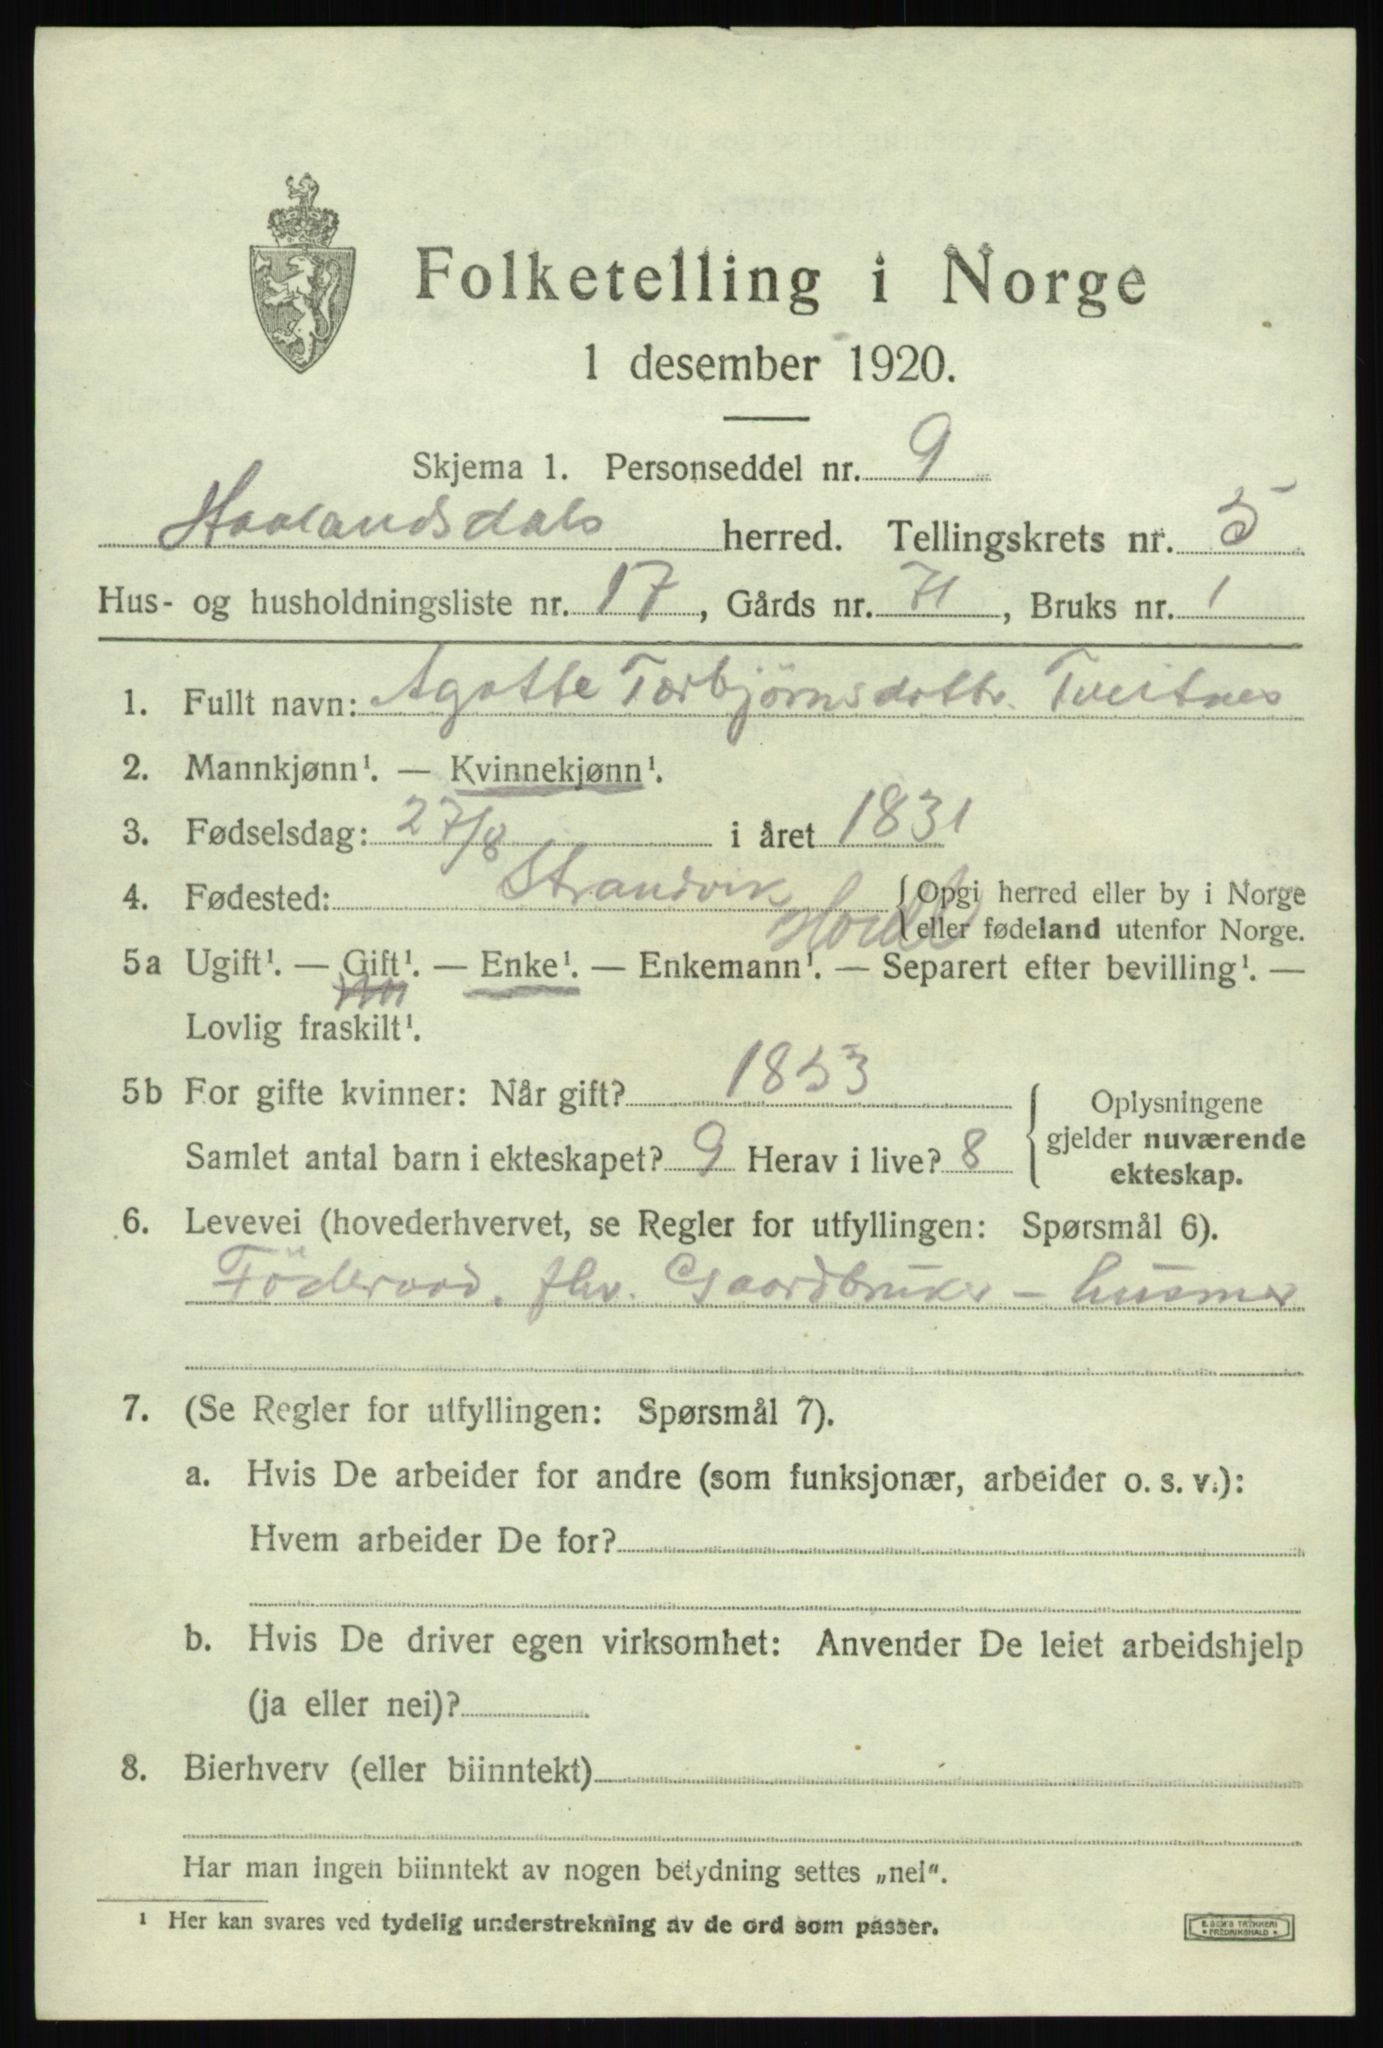 Folketelling i Norge
1 desember 1920.
Skjema 1. Personseddel nr. 9
Haalandsdals herred. Tellingskrets nr. 5
Hus- og husholdningsliste nr. 17, Gårds nr. 71, Bruks nr. 1
1. Fullt navn: Agatte Torbjörnsdottr. Tveitnes
2. Mannkjønn¹. — Kvinnekjønn¹.
3. Fødselsdag: 27/8 i året 1831
4. Fødested: Strandvik {Opgi herred eller by i Norge
Hordl eller fødeland utenfor Norge.
5a Ugift¹. — Gift¹. — Enke¹. — Enkemann¹. — Separert efter bevilling¹. —
Lovlig fraskilt¹.
5b For gifte kvinner: Når gift? 1853 Oplysningene
Samlet antal barn i ekteskapet? 9 Herav i live? 8 gjelder nuværende
ekteskap.
6. Levevei (hovederhvervet, se Regler for utfyllingen: Spørsmål 6).
Föderaad. fhv. Gaardbruker - husmor
7. (Se Regler for utfyllingen: Spørsmål 7).
a. Hvis De arbeider for andre (som funksjonær, arbeider o. s. v.):
Hvem arbeider De for?
b. Hvis De driver egen virksomhet: Anvender De leiet arbeidshjelp
(ja eller nei)?
8. Bierhverv (eller biinntekt)
Har man ingen biinntekt av nogen betydning settes „nei“.
¹ Her kan svares ved tydelig understrekning av de ord som passer.
E. SEM'S TRYKKERI
FREDRIKSHALD